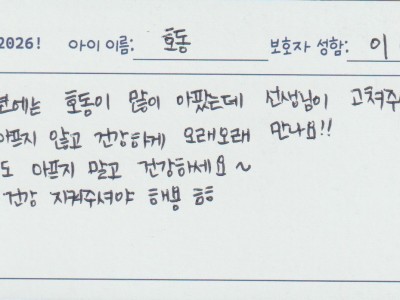 2026! 아이 이름: 호동 보호자 성함: 이
에는 호동이 많이 아팠는데 선생님이 고쳐주
아프지 않고 건강하게 오래오래 만나요!!
도 아프지 말고 건강하세요~
건강 지켜주셔야 해용 ㅎㅎ